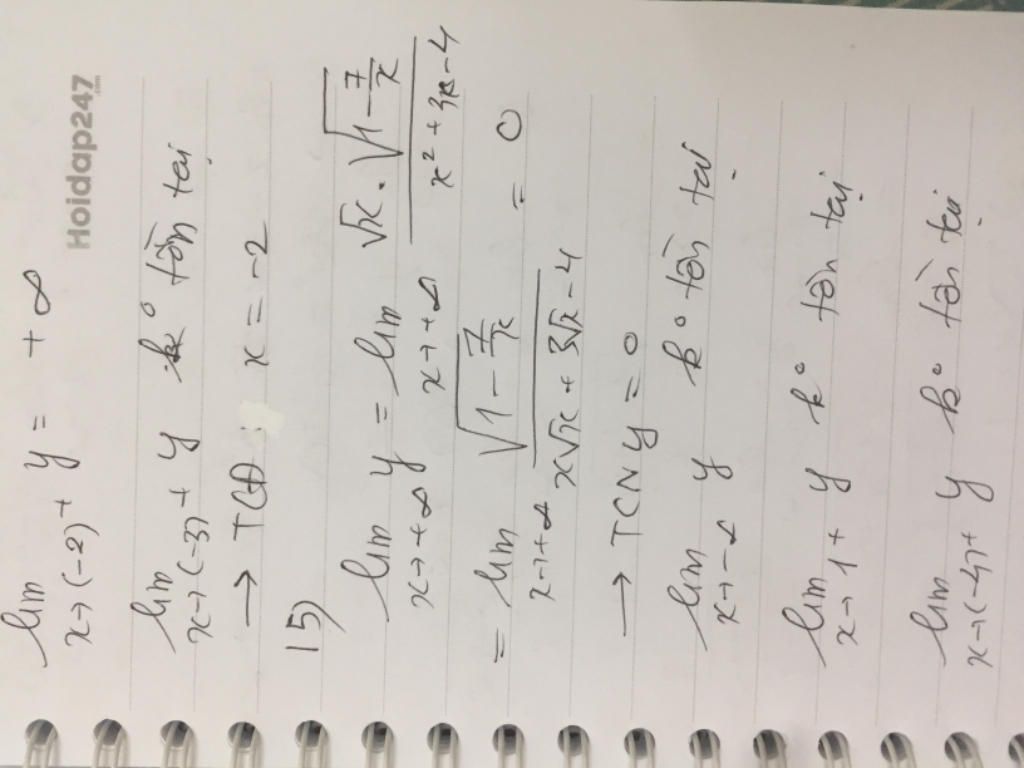 Hoidap247.com
lim x→(-2)⁺ y = +∞
lim x→(-3)⁺ y k° tồn tại
→ TCĐ x = -2
15)
lim x→+∞ y = lim x→+∞ √x . √(1 - 7/x) / (x² + 3x - 4)
= lim x→+∞ √(1 - 7/x) / (x√x + 3√x - 4) = 0
→ TCN y = 0
lim x→-∞ y k° tồn tại
lim x→1⁺ y k° tồn tại
lim x→(-4)⁺ y k° tồn tại